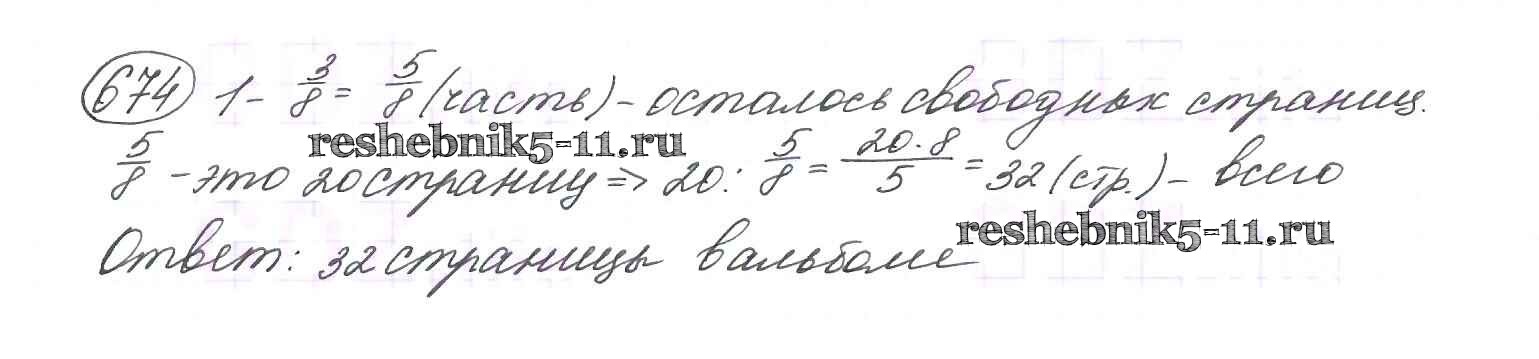 674 1 - 3/8 = 5/8 (часть) - осталось свободных страниц.
reshebnik5-11.ru
5/8 - это 20 страниц => 20 : 5/8 = 20·8/5 = 32 (стр.) - всего
reshebnik5-11.ru
Ответ: 32 страницы в альбоме